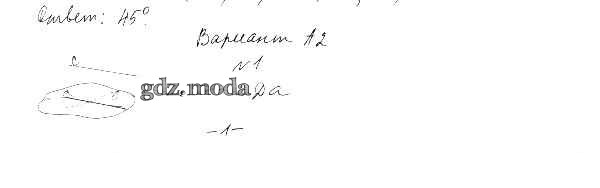 Ответ: 45°.
Вариант А2
N1
gdz.moda Да
-1-